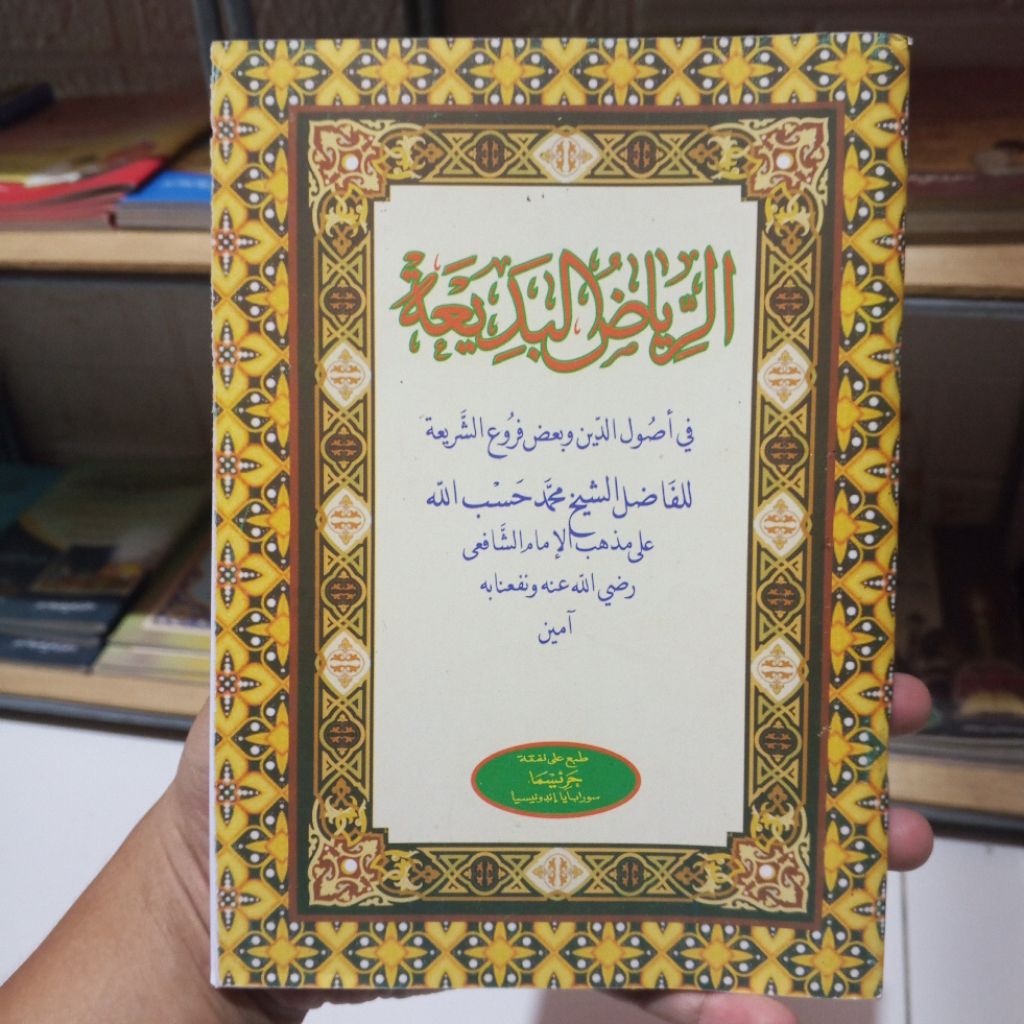 الرِّيَاضُ الْبَدِيْعَة
في أصُول الدّين وبعض فرُوع الشَّريعة
للفَاضل الشيخ محمَّد حَسْب الله
على مذهب الإمام الشَّافعى
رضي الله عنه ونفعنا به
آمين
طبع على نفقة
سورابايا إندونيسيا